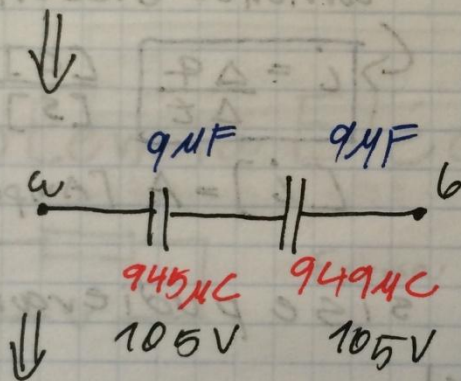 9μF 9μF
a b
945μC 949μC
105V 105V